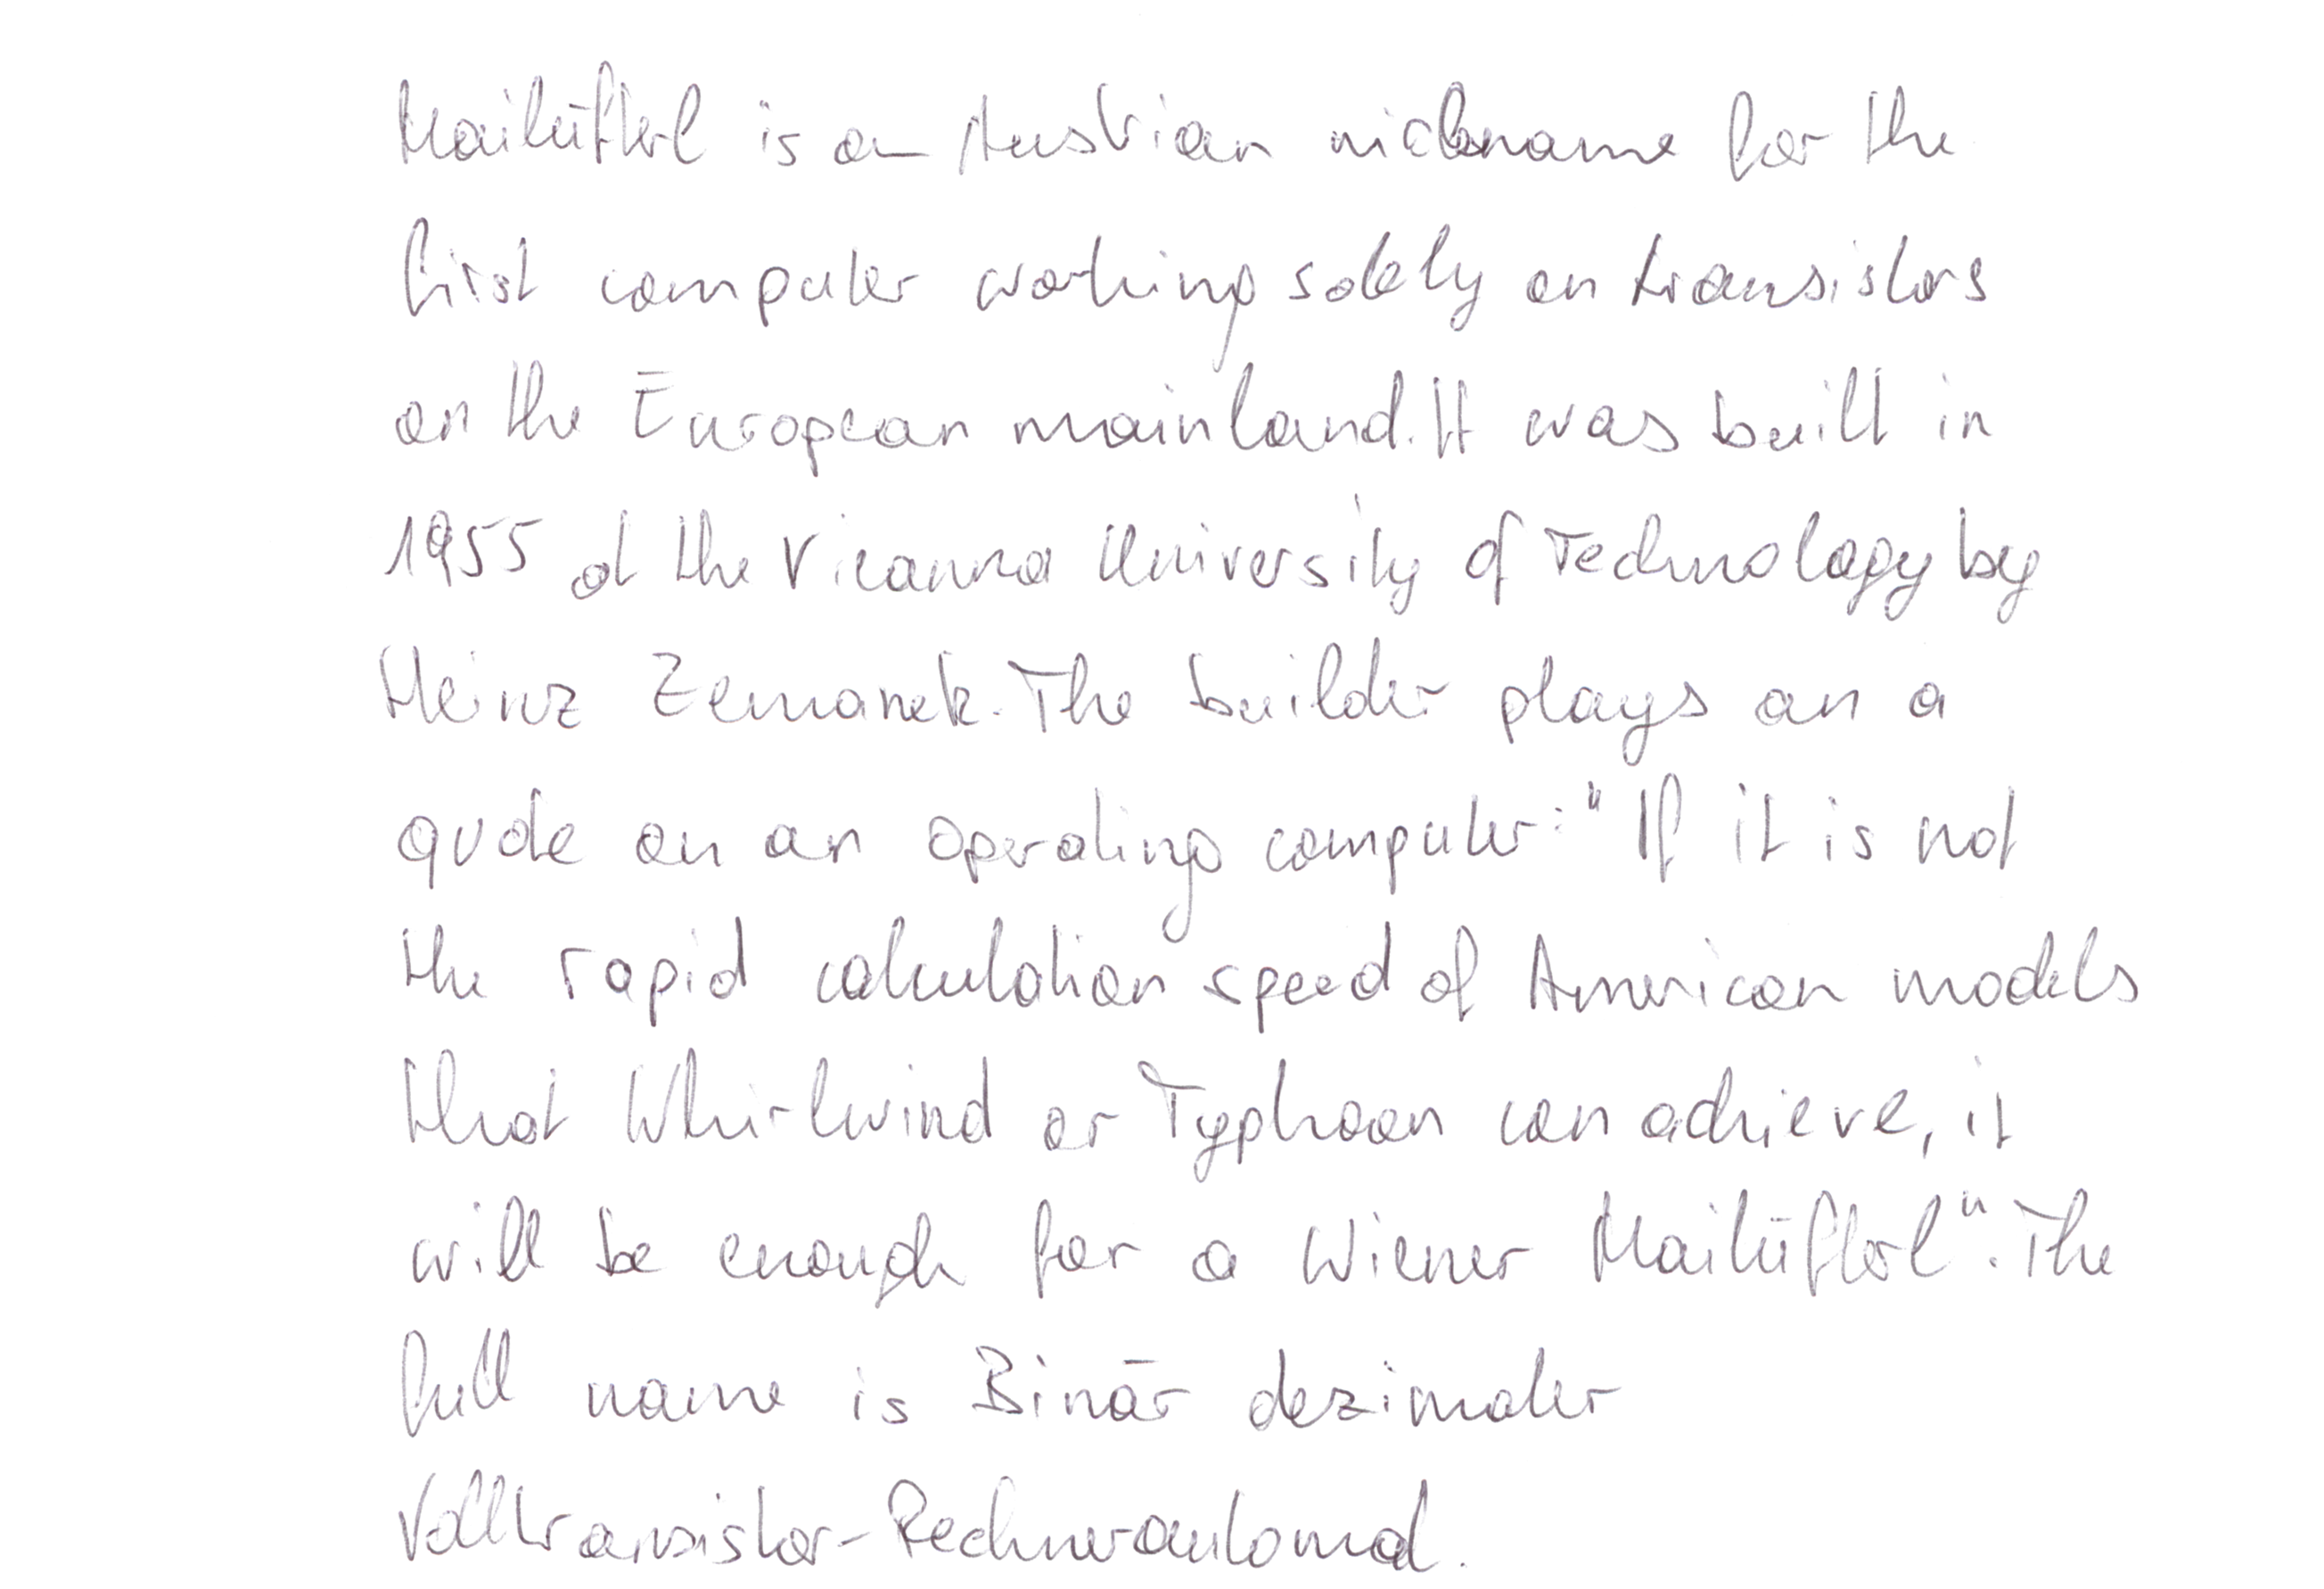 Mailüfterl is an Austrian nickname for the
first computer working solely on transistors
on the European mainland. It was built in
1955 at the Vieanna University of Technology by
Heinz Zemanek. The builder plays on a
quote on an operating computer: "If it is not
the rapid calculation speed of American models
that Whirlwind or Typhoon can achieve, it
will be enough for a Wiener Mailüfterl". The
full name is Binär dezimaler
Volltransistor-Rechnerautomat.